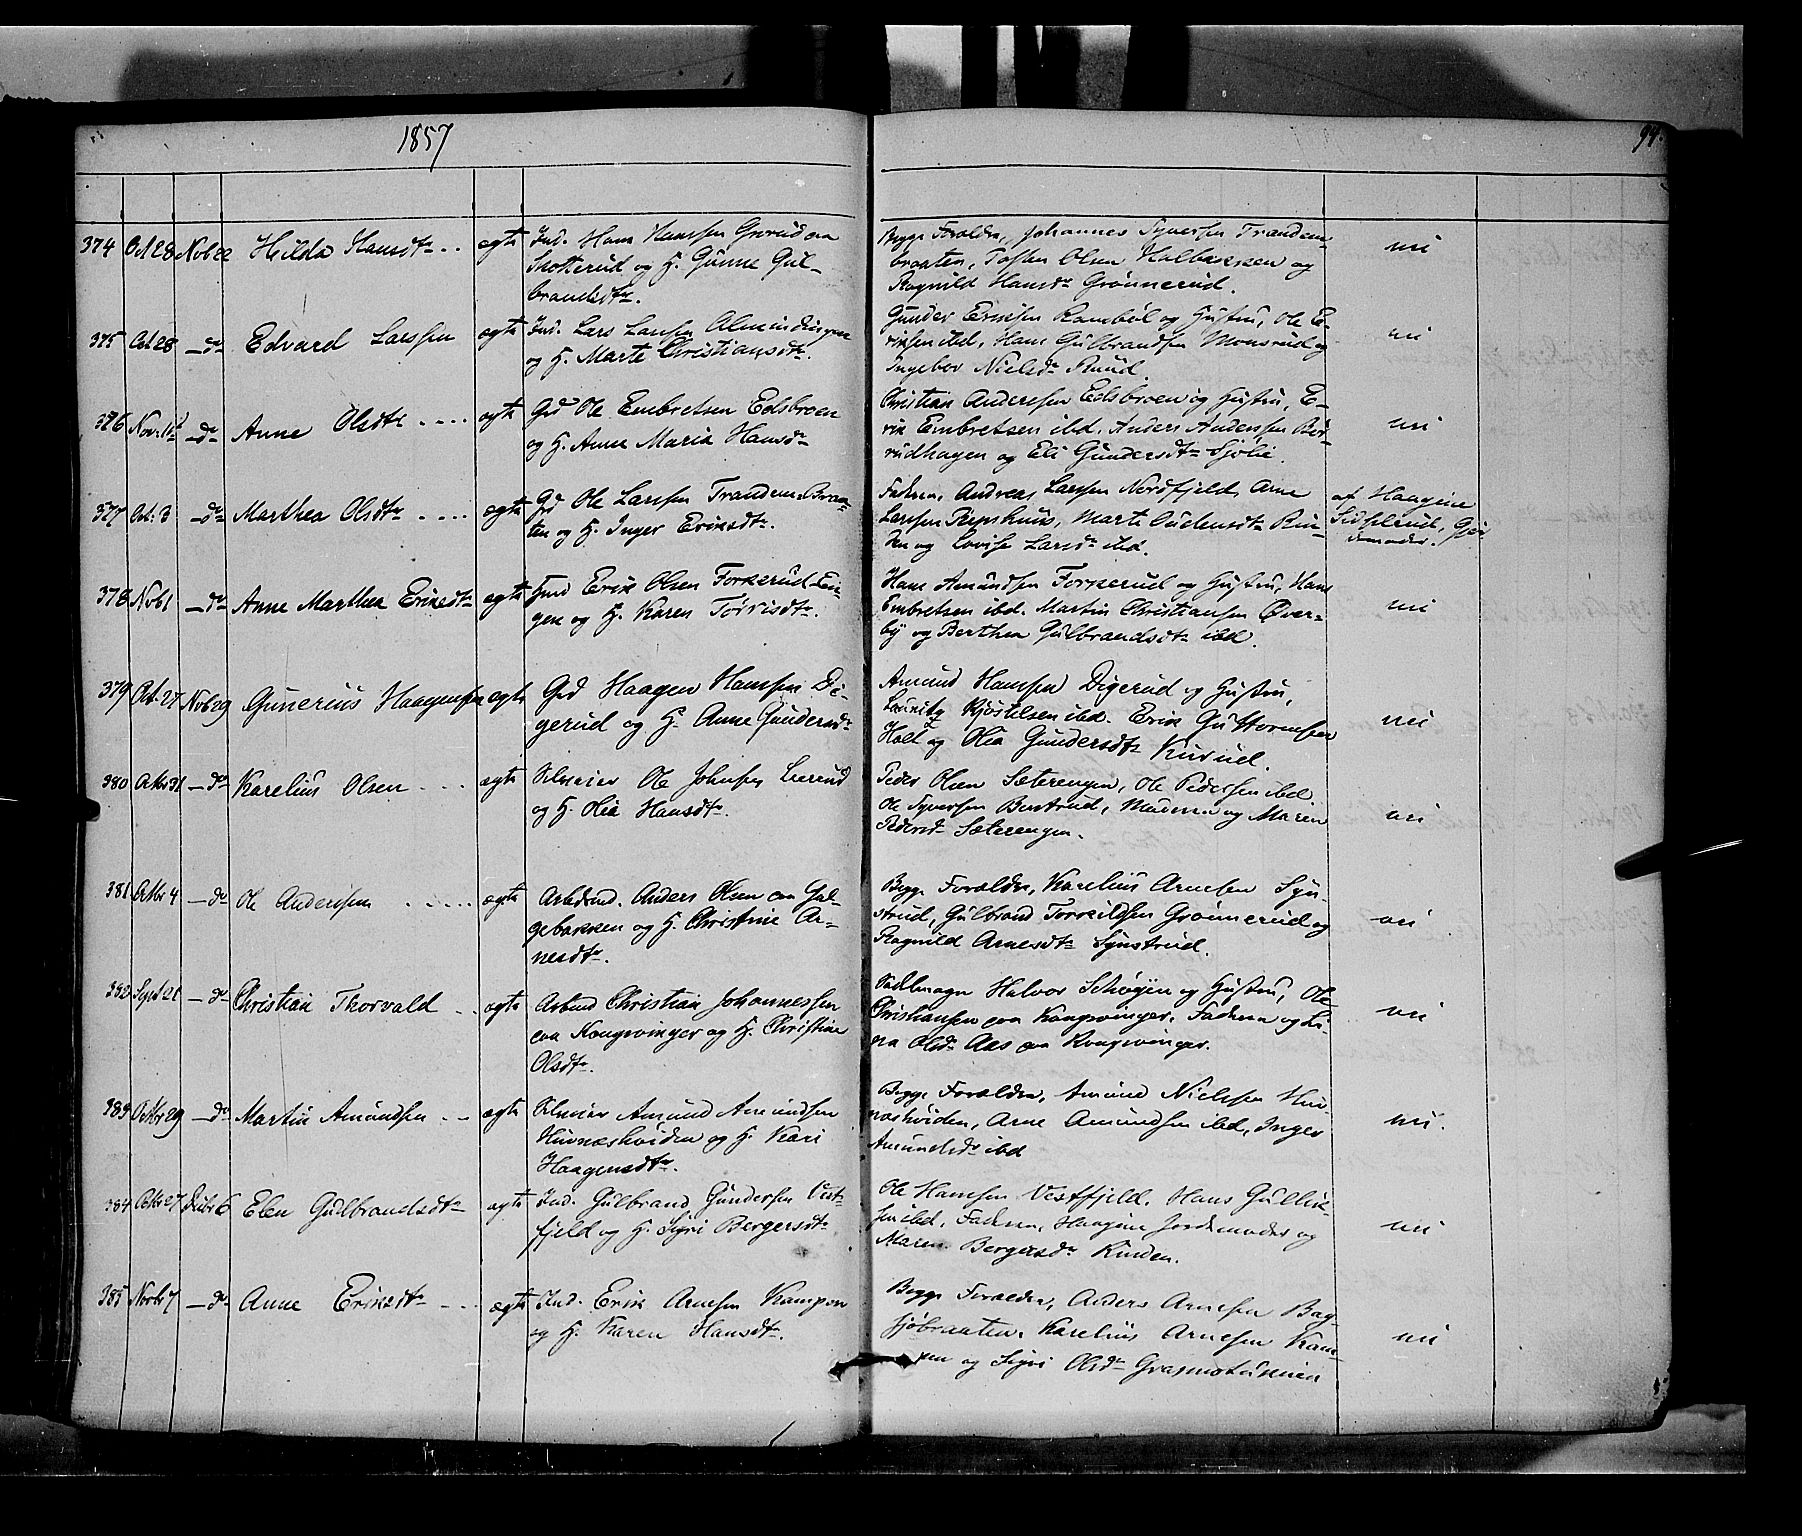 1857
94.
374 Oct 28 Nob 22 Hilda Hansdtr. . . ægte Ind. Hans Hanssen Grorud paa
Skotterud og H. Gunne Gul-
brandsdtr.
Begge Forældre, Johannes Syversen Trandem-
braaten, Tosten Olsen Halbakken og
Ragnild Hansdr Grønnerud.
nei
375 Oct 28 – do Edvard Larssen ægte Ind. Lars Larssen Almindingen
og H. Marte Christiansdtr.
Gunder Eriksen Rambøl og Hustru, Ole E-
riksen ibd, Hans Gulbrandsen Monsrud og
Ingebor Nielsdr Ruud.
nei
376 Nov. 11 – do Anne Olsdtr . . . . ægte Gd Ole Embretsen Edsbroen
og H. Anne Maria Hansdr
Christian Anderssen Edsbroen og Hustru, E-
rik Embretsen ibd. Anders Anderssen Bør-
rudhagen og Eli Gundersdtr Sjølie.
nei
377 Oct. 3 – do Marthea Olsdtr . . . . ægte Gd Ole Larssen Trandem Braa-
ten og H. Inger Eriksdtr.
Faderen, Andreas Larssen Nordfjeld, Arne
Larssen Piipshuus, Marte Audensdtr Rin-
den og Lovise Larsdr ibd.
af Haagine
Sidselrud, Gjor
demoder.
378 Nob 1 – do Anne Marthea Eriksdtr ægte Hmd Erik Olsen Forkerud Ein-
gen og H. Karen Torvisdtr.
Hans Amundsen Forkerud og Hustru, Hans
Embretsen ibd. Martin Christiansen Øver-
by og Berthea Gulbrandsdtr ibd.
nei
379 Oct. 27 Nob 29 Gunerius Haagensen ægte Gd Haagen Hanssen Di-
gerud og H. Anne Gundersdr
Amund Hanssen Digerud og Hustru,
Kjøstelsen ibd. Erik Guttormsen
Holt og Olia Gundersdtr Kurud.
nei
380 Octbr 31 – do Karelius Olsen . . . ægte Selveier Ole Johnsen Lierud
og H. Olia Hansdtr.
Peder Olsen Sæterengen, Ole Pedersen ibd.
Ole Syversen Berstrud, Madmoer og Maren
Pedersdr Sæterengen.
nei
381 Octbr 4 – do Ole Anderssen . . . . . ægte Arbdmd. Anders Olsen paa Gal-
gebakken og H. Christine Ar-
nesdtr.
Begge Forældre, Karelius Arnesen Syn-
strud, Gulbrand Torkildsen Grønnerud og
Ragnild Arnesdtr Synstrud.
nei
382 Sept 21 – do Christian Thorvald . . ægte Arbmd Christian Johannessen
paa Kongsvinger og H. Christine
Olsdtr.
Sadlmager Halvor Schøyen og Hustru, Ole
Christiansen paa Kongsvinger. Faderen og Li-
na Olsdr Aas paa Kongsvinger.
nei
383 Octbr 29 – do Martin Amundsen – – ægte Selveier Amund Amundsen
Huvnæshviden og H. Kari
Haagensdtr.
Begge Forældre, Amund Nielssen Huv-
næshviden, Arne Amundsen ibd, Inger
Amundsdr ibd
nei.
384 Octbr 27 Dcbr 6 Elen Gulbrandsdtr ægte Ind. Gulbrand Gundersen Vest-
fjeld og H. Sigri Bergersdtr
Ole Hanssen Vestfjeld, Hans Gullik-
sen ibd, Faderen, Haagine Jordemoder og
Maren Bergersdr Rinden.
nei
385 Novbr 7 – do Anne Eriksdtr . . . ægte Ind. Erik Arnesen Kampen
og H. Karen Hansdtr.
Begge Forældre, Anders Arnesen Bag-
sjøbraaten. Karelius Arnesen Kam-
pen og Sigri Olsdr Grasmostuknien
nei